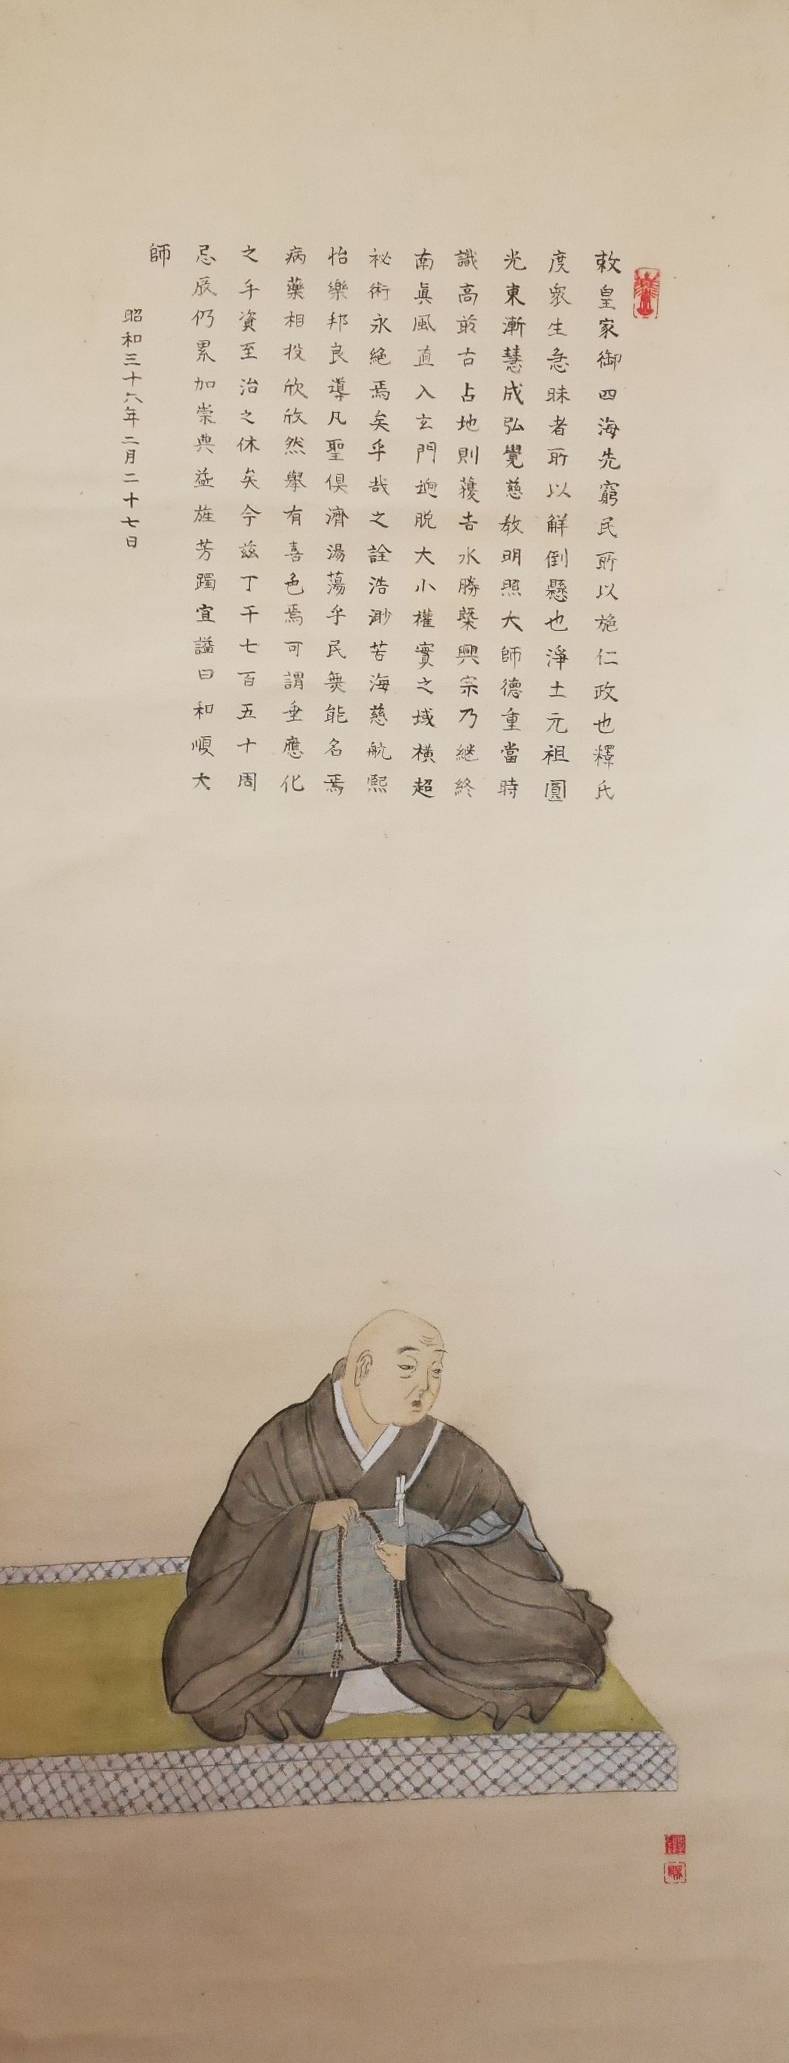 敕皇家御四海先窮民所以施仁政也釋氏
度衆生急昧者所以解倒懸也淨土元祖圓
光東漸慧成弘覺慈教明照大師德重當時
識高前古占地則獲吉水勝槩興宗乃繼終
南眞風直入玄門逈脫大小權實之域橫超
祕術永絕焉矣乎哉之詮浩渺苦海慈航熙
怡樂邦良導凡聖俱濟湯蕩乎民無能名焉
病藥相投欣欣然擧有喜色焉可謂垂應化
之手資至治之休矣今茲丁于七百五十周
忌辰仍累加崇典益旌芳躅宜謚曰和順大
師
昭和三十六年二月二十七日